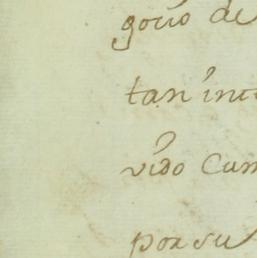 gocio de
tan inte
vido Cum
por su